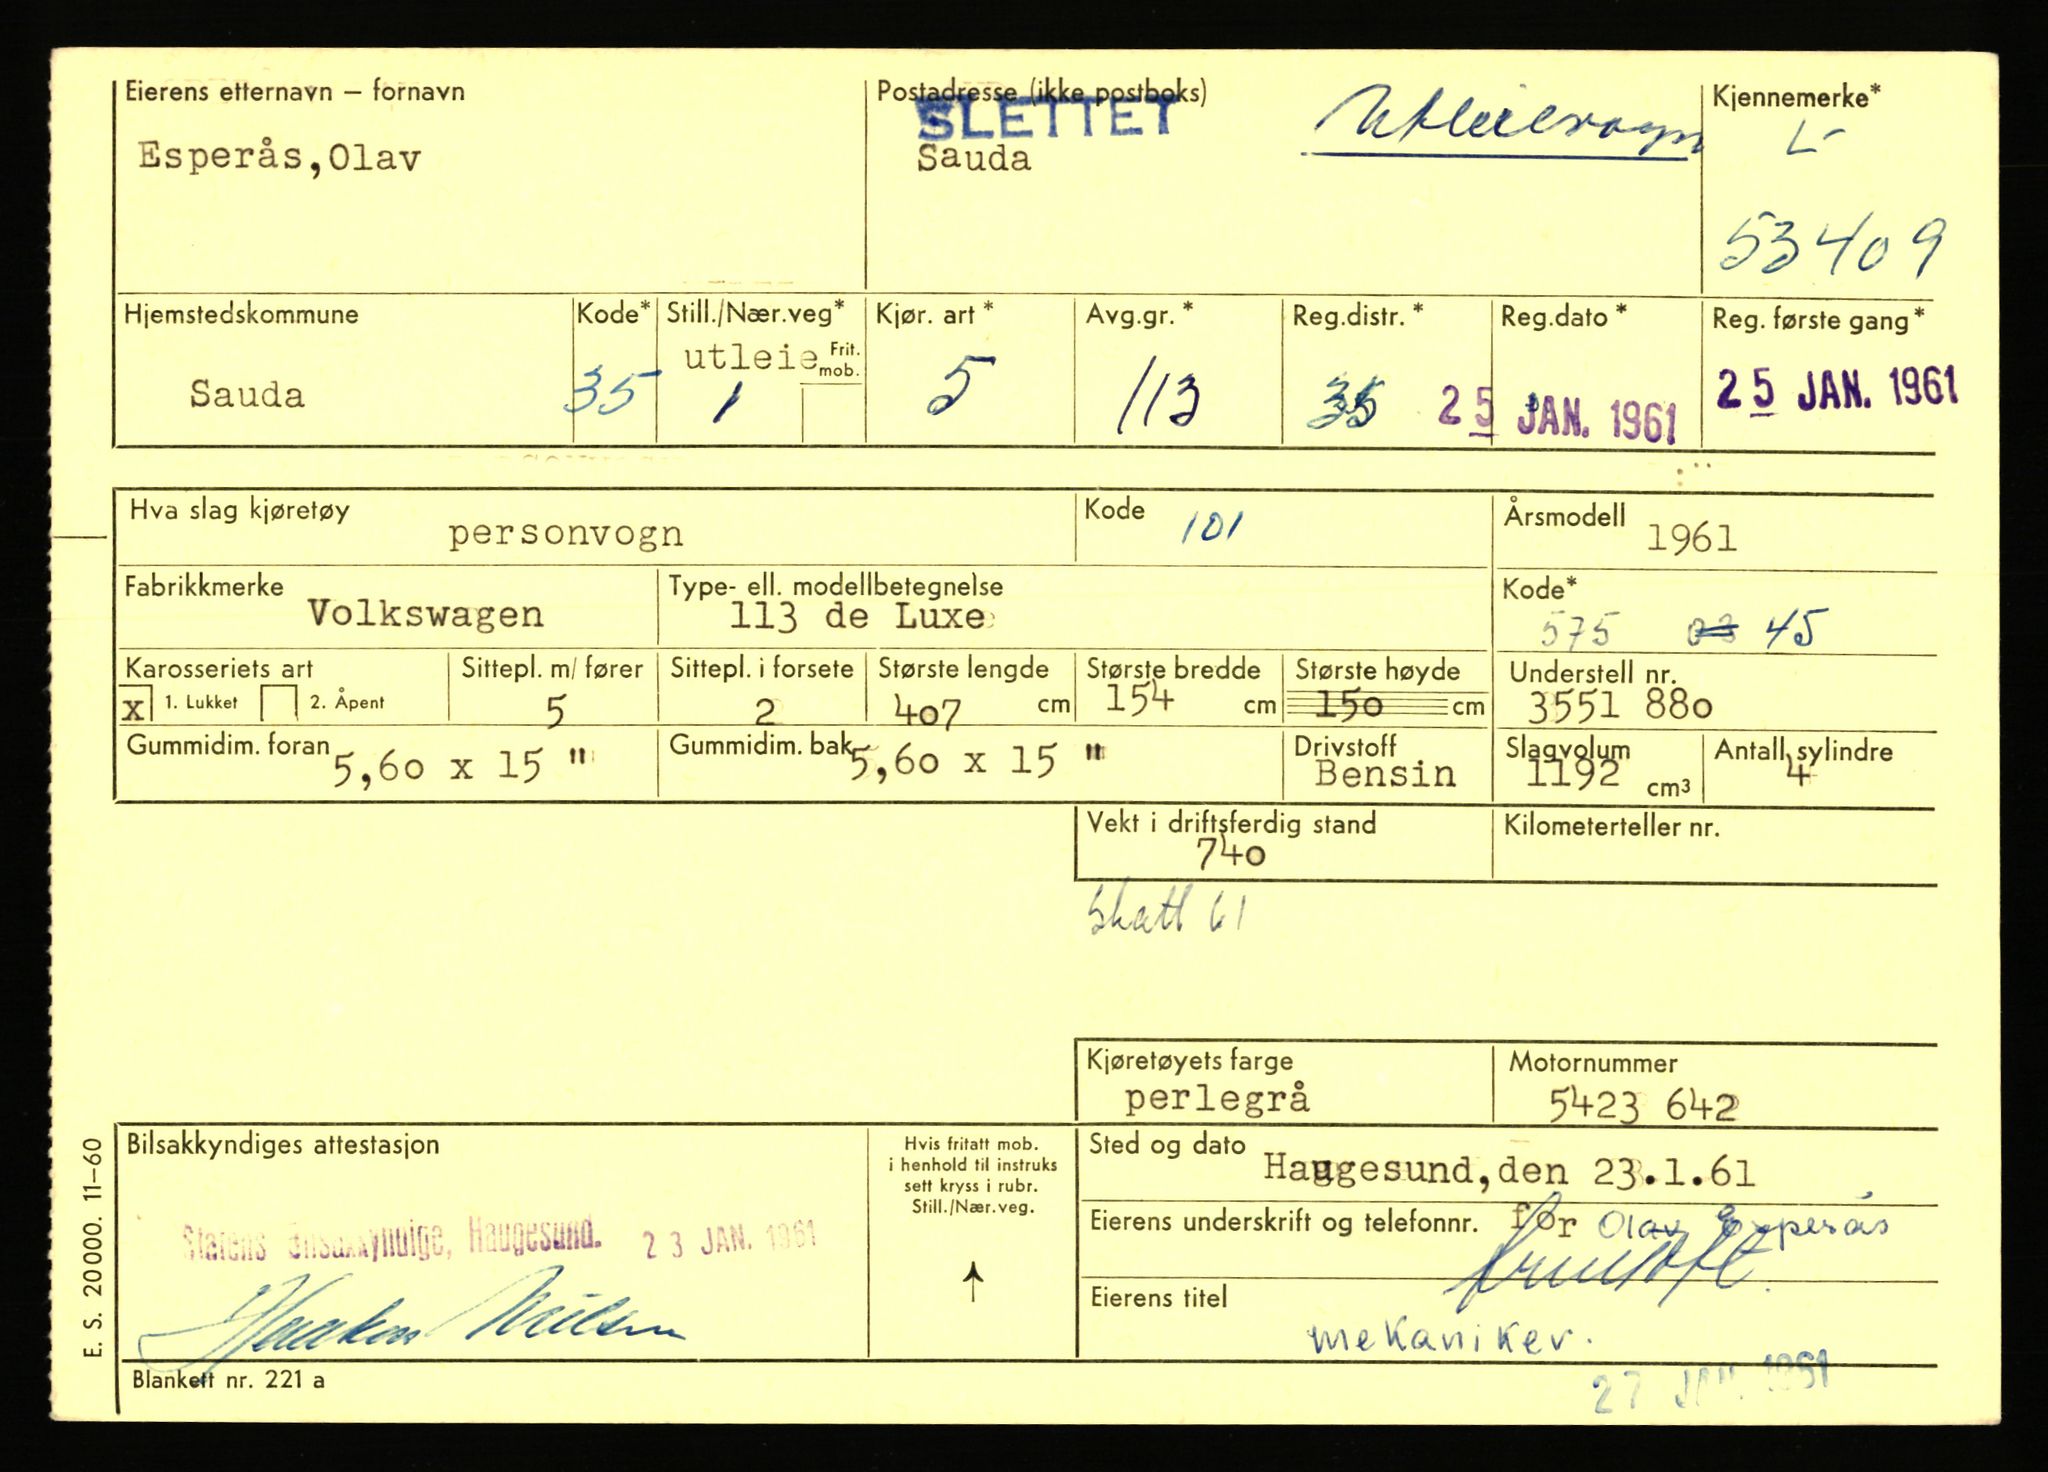 Eierens etternavn – fornavn
Esperås, Olav
Postadresse (ikke postboks)
SLETTET
Sauda
Utleievogn
Kjennemerke*
L-
53409
Hjemstedskommune
Sauda
Kode*
35
Still./Nær.veg*
utleie
Frit. mob.
1
Kjør. art *
5
Avg.gr. *
113
Reg.distr. *
35
Reg.dato *
25 JAN. 1961
Reg. første gang *
25 JAN. 1961
Hva slag kjøretøy
personvogn
Kode
101
Årsmodell
1961
Fabrikkmerke
Volkswagen
Type- ell. modellbetegnelse
113 de Luxe
Kode*
575 45
Karosseriets art
x 1. Lukket 2. Åpent
Sittepl. m/ fører
5
Sittepl. i forsete
2
Største lengde
407 cm
Største bredde
154 cm
Største høyde
150 cm
Understell nr.
3551 880
Gummidim. foran
5,60 x 15 "
Gummidim. bak
5,60 x 15 "
Drivstoff
Bensin
Slagvolum
1192 cm³
Antall sylindre
4
Vekt i driftsferdig stand
740
Kilometerteller nr.
Skatt 61
Kjøretøyets farge
perlegrå
Motornummer
5423 642
Bilsakkyndiges attestasjon
Statens Bilsakkyndige, Haugesund. 23 JAN. 1961
Haakon Nilsen
Hvis fritatt mob.
i henhold til instruks
sett kryss i rubr.
Still./Nær.veg.
Sted og dato
Haugesund, den 23.1.61
Eierens underskrift og telefonnr.
for Olav Esperås
Eierens titel
mekaniker.
27 JAN. 1961
E. S. 20000. 11–60
Blankett nr. 221 a